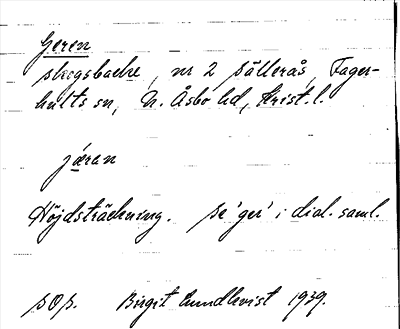 Geren
skogsbacke, nr 2 Sällerås, Fager-
hults sn, N. Åsbo hd, Krist. l.
jæran
Höjdsträckning. se 'ger' i dial. saml.
Birgit Lundkvist 1939.